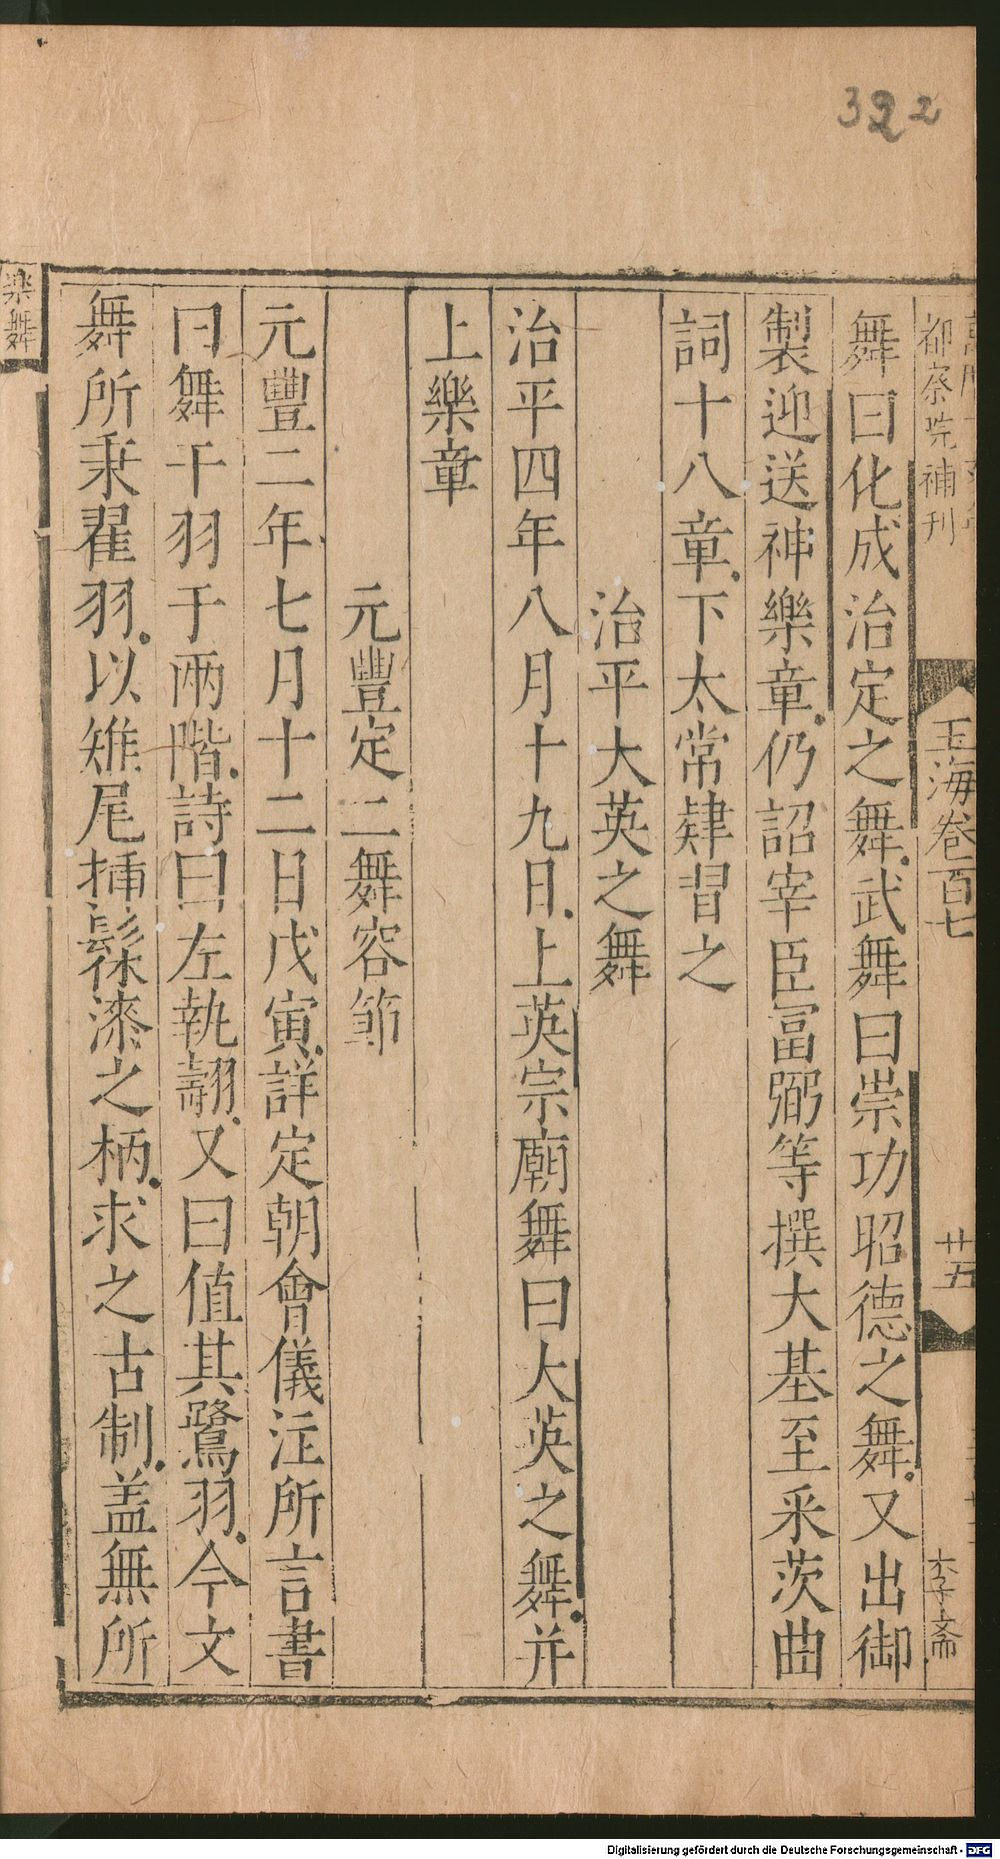 322
都察院補刊
玉海卷百七
廿五
李斋
舞曰化成治定之舞武舞曰崇功昭德之舞又出御
製迎送神樂章仍詔宰臣冨弼等撰大基至采茨曲
詞十八章下太常肄習之
治平大英之舞
治平四年八月十九日上英宗廟舞曰大英之舞并
上樂章
元豐定二舞容節
元豐二年七月十二日戊寅詳定朝會儀注所言書
曰舞干羽于兩階詩曰左執翿又曰值其鷺羽今文
舞所秉翟羽以雉尾揷髹漆之柄求之古制盖無所
樂舞
Digitalisierung gefördert durch die Deutsche Forschungsgemeinschaft - DFG